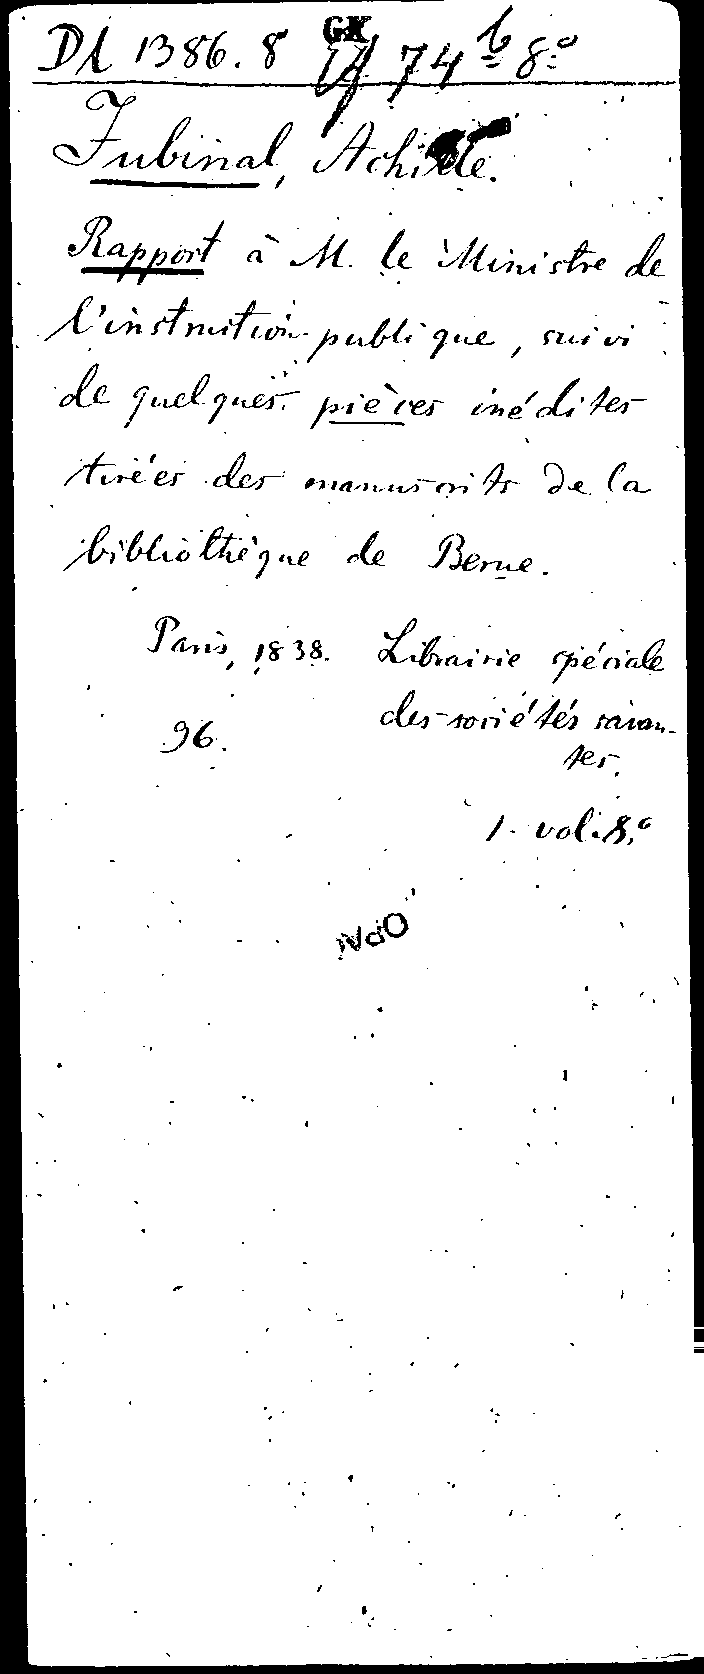 D1 1386.8 GX 74 b 8º
Jubinal, Achille.
Rapport à M. le Ministre de
l'instruction publique, suivi
de quelques pièces inédites
tirées des manuscrits de la
bibliothèque de Berne.
Paris, 1838. Librairie spéciale
des sociétés savan-
tes.
96.
1 vol. 8º